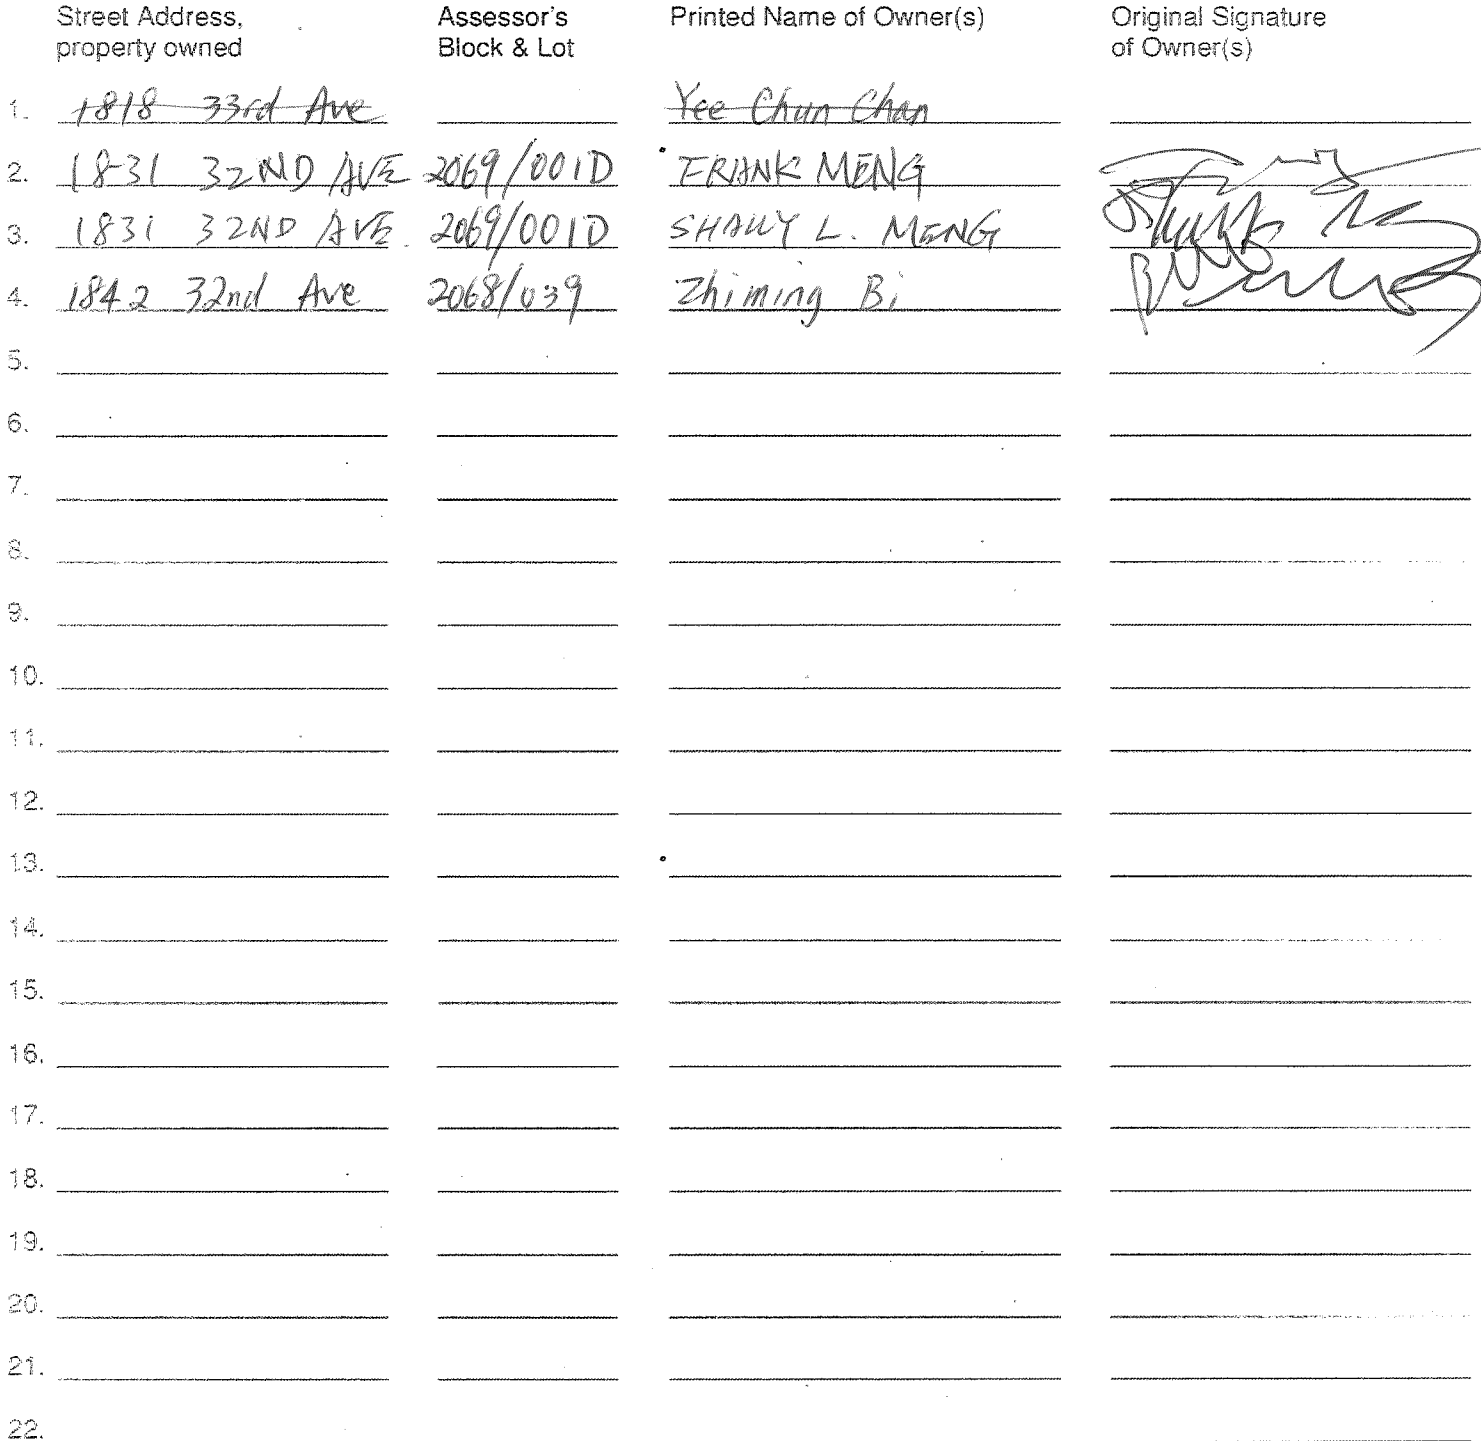 Street Address, property owned Assessor's Block & Lot Printed Name of Owner(s) Original Signature of Owner(s)
1. 1818 33rd Ave Yee Chun Chan
2. 1831 32ND AVE 2069/001D FRANK MENG
3. 1831 32ND AVE. 2069/001D SHAUY L. MENG
4. 1842 32nd Ave 2068/039 Zhiming Bi
5.
6.
7.
8.
9.
10.
11.
12.
13.
14.
15.
16.
17.
18.
19.
20.
21.
22.